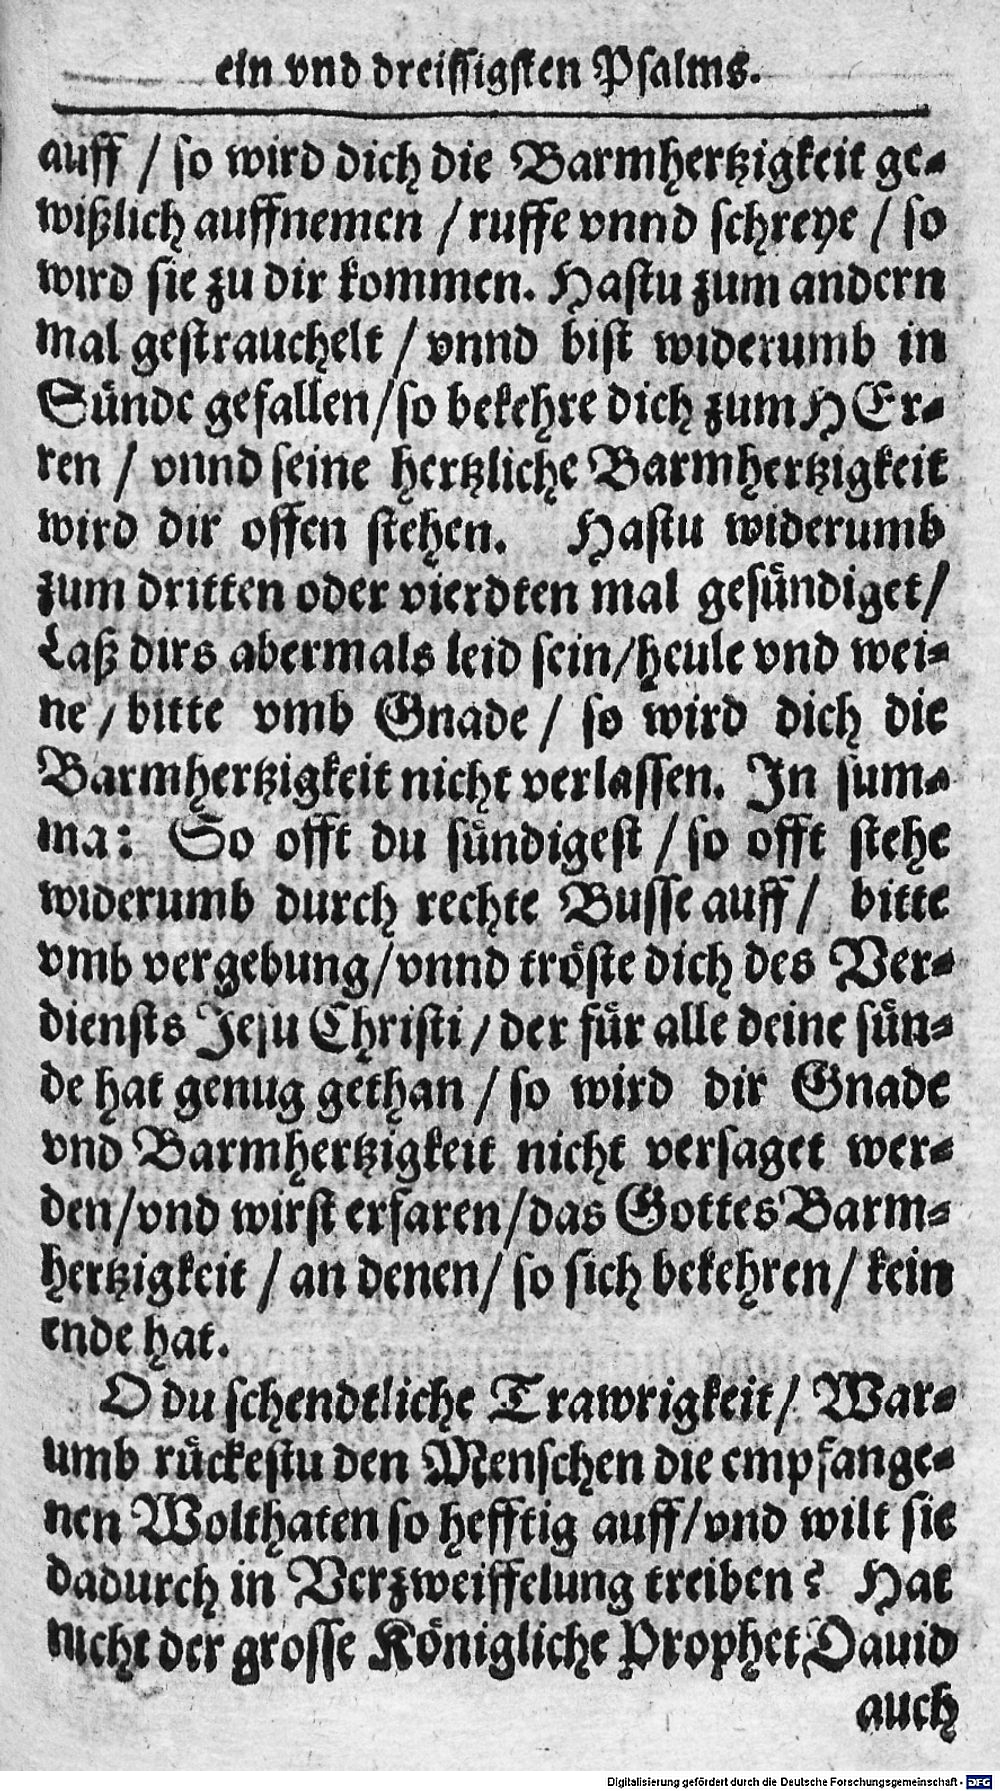 ein vnd dreissigsten Psalms.
auff / so wird dich die Barmhertzigkeit ge-
wißlich auffnemen / ruffe vnnd schreye / so
wird sie zu dir kommen. Hastu zum andern
mal gestrauchelt / vnnd bist widerumb in
Sünde gefallen/so bekehre dich zum HEr-
ren / vnnd seine hertzliche Barmhertzigkeit
wird dir offen stehen. Hastu widerumb
zum dritten oder vierdten mal gesündiget/
Laß dirs abermals leid sein/heule vnd wei-
ne / bitte vmb Gnade / so wird dich die
Barmhertzigkeit nicht verlassen. In sum-
ma: So offt du sündigest / so offt stehe
widerumb durch rechte Busse auff / bitte
vmb vergebung/vnnd tröste dich des Ver-
diensts Jesu Christi / der für alle deine sün-
de hat genug gethan / so wird dir Gnade
vnd Barmhertzigkeit nicht versaget wer-
den/vnd wirst erfaren/das Gottes Barm-
hertzigkeit / an denen/ so sich bekehren/ kein
ende hat.
O du schendtliche Trawrigkeit/ War-
umb rückestu den Menschen die empfange-
nen Wolthaten so hefftig auff/vnd wilt sie
dadurch in Verzweiffelung treiben? Hat
nicht der grosse Königliche Prophet Dauid
auch
Digitalisierung gefördert durch die Deutsche Forschungsgemeinschaft - DFG